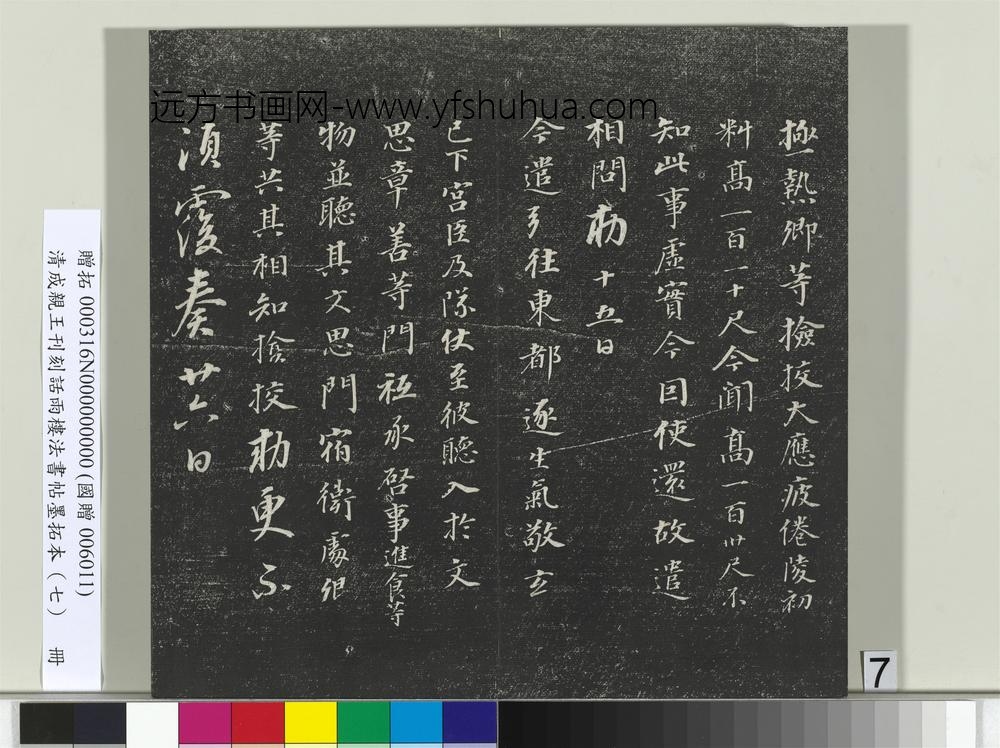 極熱卿等檢挍大應疲倦陵初
料高一百一十尺今聞高一百卅尺不
知此事虛實今因使還故遣
相問勅十五日
今遣弓往東都逐生氣敬玄
已下宮臣及隊仗至彼聽入於文
思章善等門祗承啓事進食等
物並聽其文思門宿衛處仰
等共其相知撿挍勅更不
須覆奏廿六日
远方书画网-www.yfshuhua.com
贈拓 000316N000000000(國贈 006011)
清成親王刊刻話雨樓法書帖墨拓本(七) 冊
7